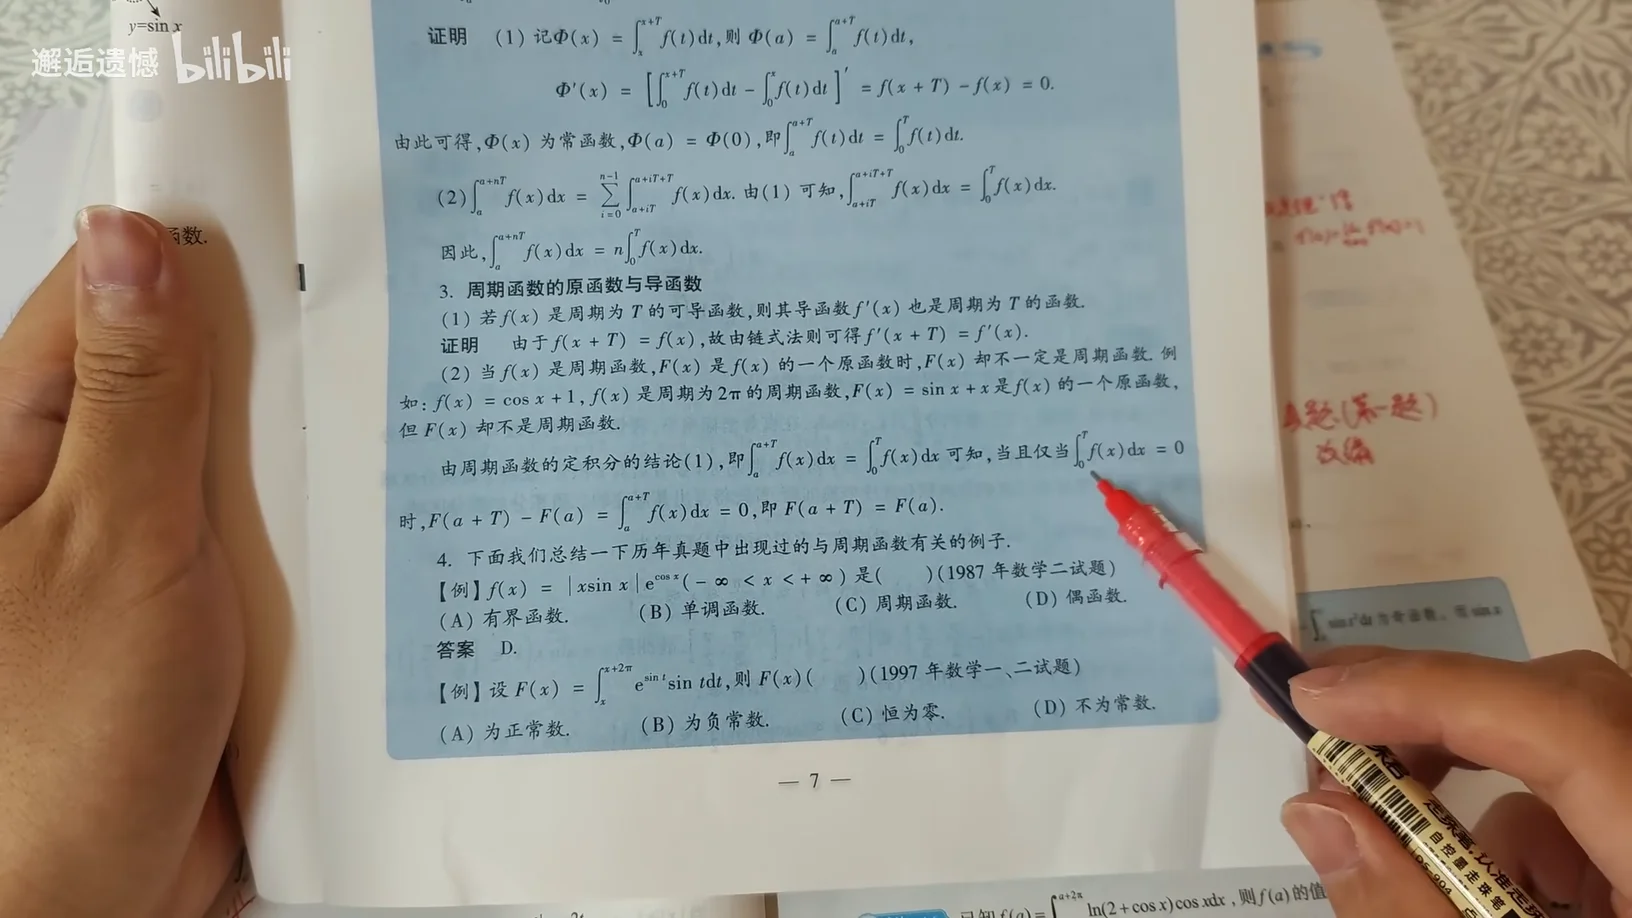 y=sin x
邂逅遗憾 bilibili
证明 (1) 记Φ(x) = ∫_x^{x+T} f(t)dt,则 Φ(a) = ∫_a^{a+T} f(t)dt,
Φ′(x) = [∫_0^{x+T} f(t)dt − ∫_0^x f(t)dt]′ = f(x + T) − f(x) = 0.
由此可得,Φ(x) 为常函数,Φ(a) = Φ(0),即∫_a^{a+T} f(t)dt = ∫_0^T f(t)dt.
(2)∫_a^{a+nT} f(x)dx = ∑_{i=0}^{n−1} ∫_{a+iT}^{a+iT+T} f(x)dx. 由(1) 可知,∫_{a+iT}^{a+iT+T} f(x)dx = ∫_0^T f(x)dx.
函数.
因此,∫_a^{a+nT} f(x)dx = n∫_0^T f(x)dx.
3. 周期函数的原函数与导函数
(1) 若f(x) 是周期为 T 的可导函数,则其导函数f′(x) 也是周期为 T 的函数.
证明 由于 f(x + T) = f(x),故由链式法则可得f′(x + T) = f′(x).
(2) 当f(x) 是周期函数,F(x) 是f(x) 的一个原函数时,F(x) 却不一定是周期函数. 例
如: f(x) = cos x + 1, f(x) 是周期为2π的周期函数,F(x) = sin x + x 是f(x) 的一个原函数,
但 F(x) 却不是周期函数.
由周期函数的定积分的结论(1),即∫_a^{a+T} f(x)dx = ∫_0^T f(x)dx 可知,当且仅当∫_0^T f(x)dx = 0
时,F(a + T) − F(a) = ∫_a^{a+T} f(x)dx = 0,即 F(a + T) = F(a).
4. 下面我们总结一下历年真题中出现过的与周期函数有关的例子.
【例】f(x) = |xsin x|e^{cos x}(− ∞ < x < + ∞) 是( )(1987 年数学二试题)
(A) 有界函数. (B) 单调函数. (C) 周期函数. (D) 偶函数.
答案 D.
【例】设 F(x) = ∫_x^{x+2π} e^{sin t}sin tdt,则 F(x)( )(1997 年数学一、二试题)
(A) 为正常数. (B) 为负常数. (C) 恒为零. (D) 不为常数.
— 7 —
真题(第一题)
改编
自控墨走珠笔
已知 f(a)=∫_a^{a+2π} ln(2+cos x)cos xdx,则f(a)的值